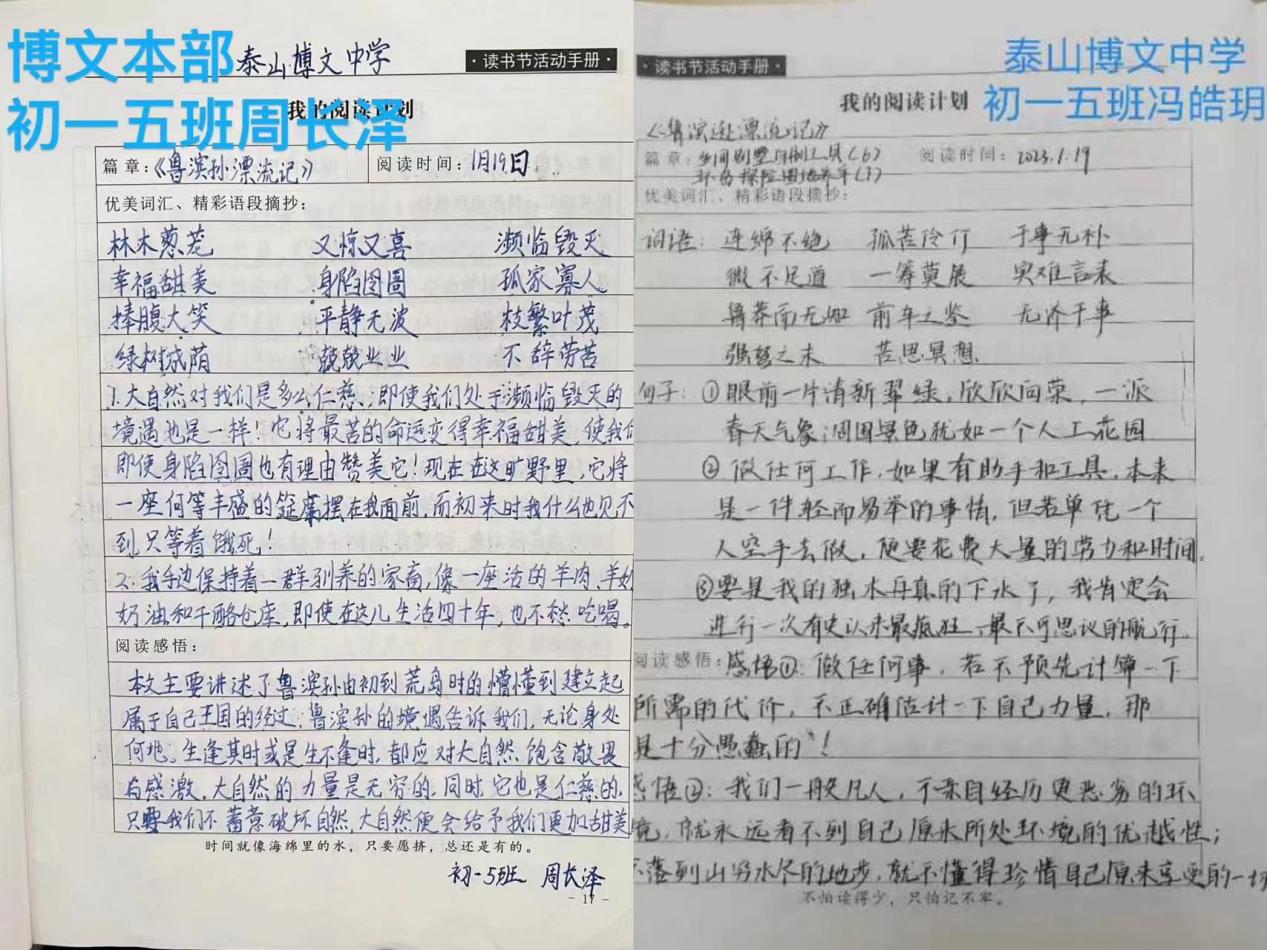 博文本部
初一五班周长泽
泰山博文中学
·读书节活动手册·
我的阅读计划
篇章:《鲁滨孙漂流记》 阅读时间:1月19日.
优美词汇、精彩语段摘抄:
林木葱茏 又惊又喜 濒临毁灭
幸福甜美 身陷囹圄 孤家寡人
捧腹大笑 平静无波 枝繁叶茂
绿树成荫 兢兢业业 不辞劳苦
1.大自然对我们是多么仁慈,即使我们处于濒临毁灭的
境遇也是一样!它将最苦的命运变得幸福甜美,使我们
即使身陷囹圄也有理由赞美它!现在在这旷野里,它将
一座何等丰盛的筵席摆在我面前,而初来时我什么也见不
到,只等着饿死!
2.我手边保持着一群驯养的家畜,像一座活的羊肉、羊奶
奶油和干酪仓库,即使在这儿生活四十年,也不愁吃喝。
阅读感悟:
本文主要讲述了鲁滨孙由初到荒岛时的懵懂到建立起
属于自己王国的经过:鲁滨孙的境遇告诉我们,无论身处
何地。生逢其时或是生不逢时,都应对大自然饱含敬畏
与感激,大自然的力量是无穷的,同时它也是仁慈的,
只要我们不蓄意破坏自然,大自然便会给予我们更加甜美
时间就像海绵里的水,只要愿挤,总还是有的。
初一5班 周长泽
- 17 -
·读书节活动手册·
泰山博文中学
初一五班冯皓玥
我的阅读计划
《鲁滨逊漂流记》
篇章:乡间别墅 自制工具(6) 阅读时间:2023.1.19
环岛探险 圈地养羊(7)
优美词汇、精彩语段摘抄:
词语: 连绵不绝 孤苦伶仃 于事无补
微不足道 一筹莫展 实难言表
鲁莽而无知 前车之鉴 无济于事
强弩之末 苦思冥想
句子:①眼前一片清新翠绿,欣欣向荣,一派
春天气象;周围景色犹如一个人工花园
②做任何工作,如果有助手和工具,本来
是一件轻而易举的事情,但若单凭一个
人空手去做,便要花费大量的劳力和时间.
③要是我的独木舟真的下水了,我肯定会
进行一次有史以来最疯狂、最不可思议的航行.
阅读感悟:感悟①:做任何事,若不预先计算一下
所需的代价,不正确估计一下自己力量,那
是十分愚蠢的!
感悟②:我们一般凡人,不亲自经历更恶劣的环
境,就永远看不到自己原来所处环境的优越性;
不落到山穷水尽的地步,就不懂得珍惜自己原来享受的一切
不怕读得少,只怕记不牢。